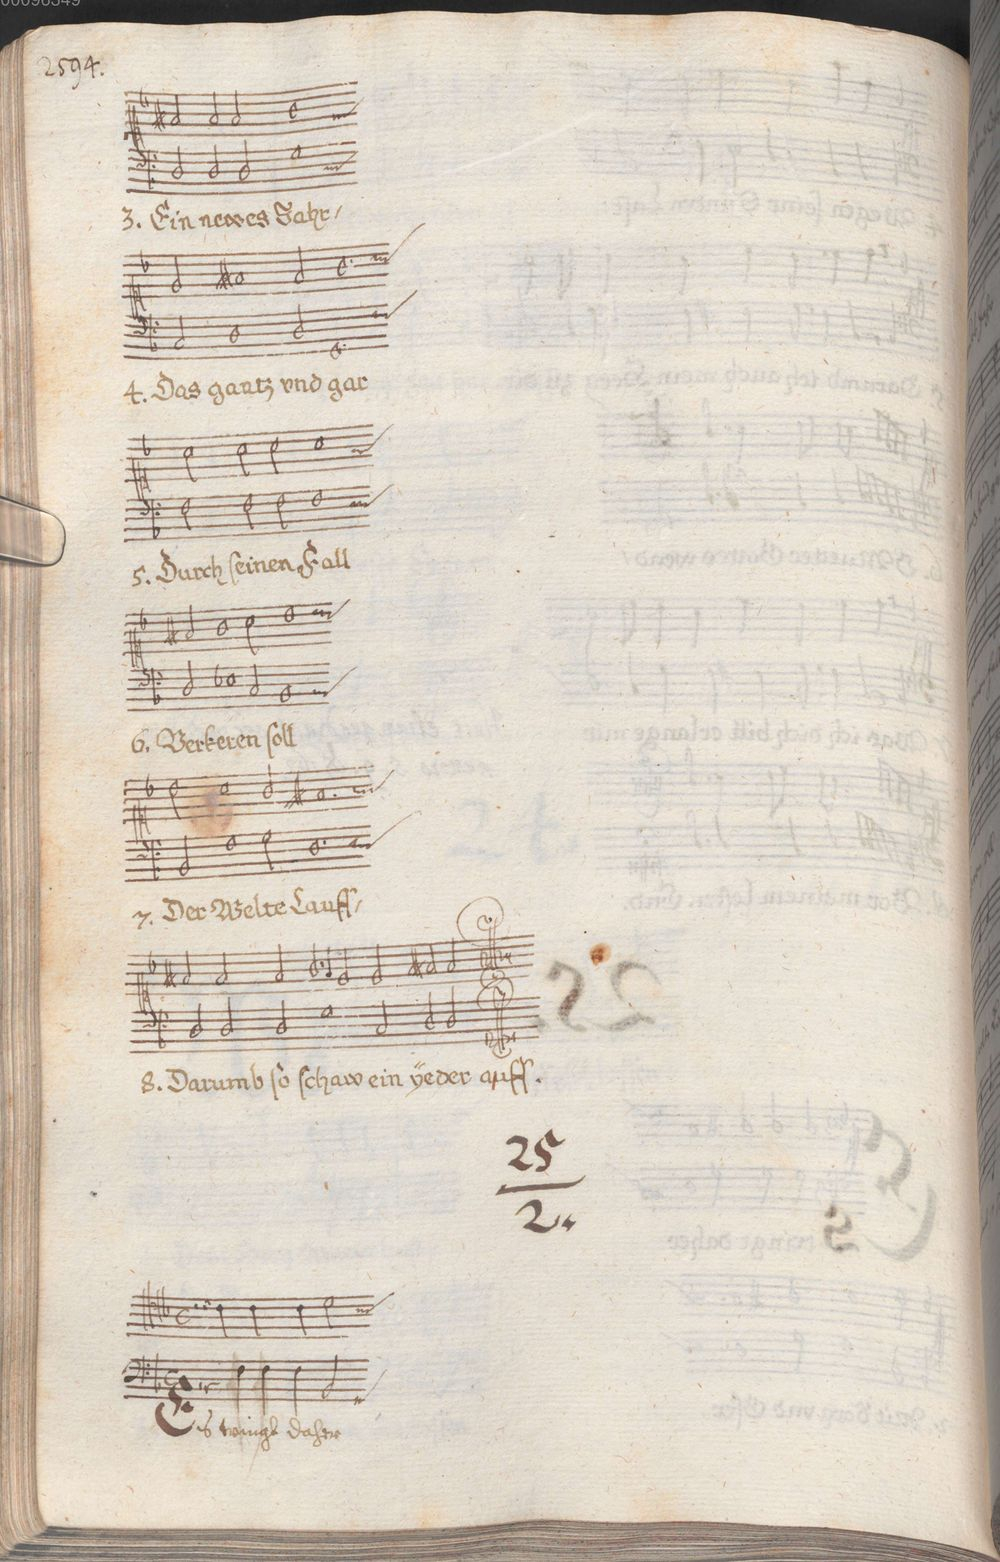 00096349
2594.
3. Ein newes Jahr/
4. Das gantz vnd gar
5. Durch seinen Fall
6. Verkeren soll
7. Der Welte Lauff/
8. Darumb so schaw ein ÿeder auff.
25
2.
Es daher